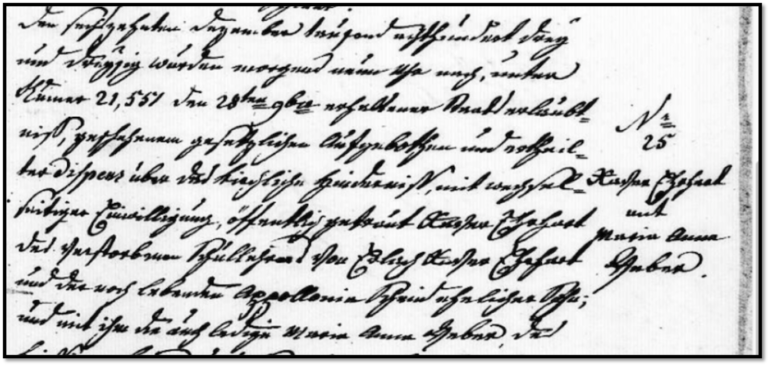 Den sechzehnten Dezember tausend achthundert drey
und dreyßig wurden morgens neun Uhr nach, unter
Numer 21,551 den 28ten 9ber erhaltener Staatserlaubt-
niß, geschehenem gesetzlichen Aufgebothen und ertheil-
ter Dispens über das kirchliche Hinderniß, mit wechsel-
seitiger Einwilligung, öffentlich getraut Xaver Ehrhart
des verstorbenen Schullehrers von Xaver Ehrhart
und der noch lebenden Appollonia ehelicher Sohn;
und mit ihm die auch ledige Maria Anna Weber, des
N=
25
Xaver Ehrhart
mit
Maria Anna
Weber.